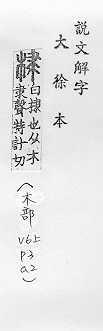 說文解字
大徐本
棣 白棣也从木
隶聲特計切
(木部 V6上 P3 a2)